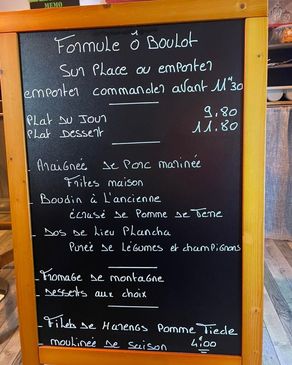 MEMO
Formule Ô Boulot
Sur Place ou emporter
emporter commander avant 11H30
Plat du Jour 9.80
Plat Dessert 11.80
Araignée de Porc marinée
Frites maison
- Boudin à L'ancienne
écrasé de Pomme de Terre
- Dos de Lieu Plancha
Purée de Légumes et champignons
- Fromage de montagne
- Desserts aux choix
- Filets de Harengs Pomme Tiede
- moulinée de saison 4€00